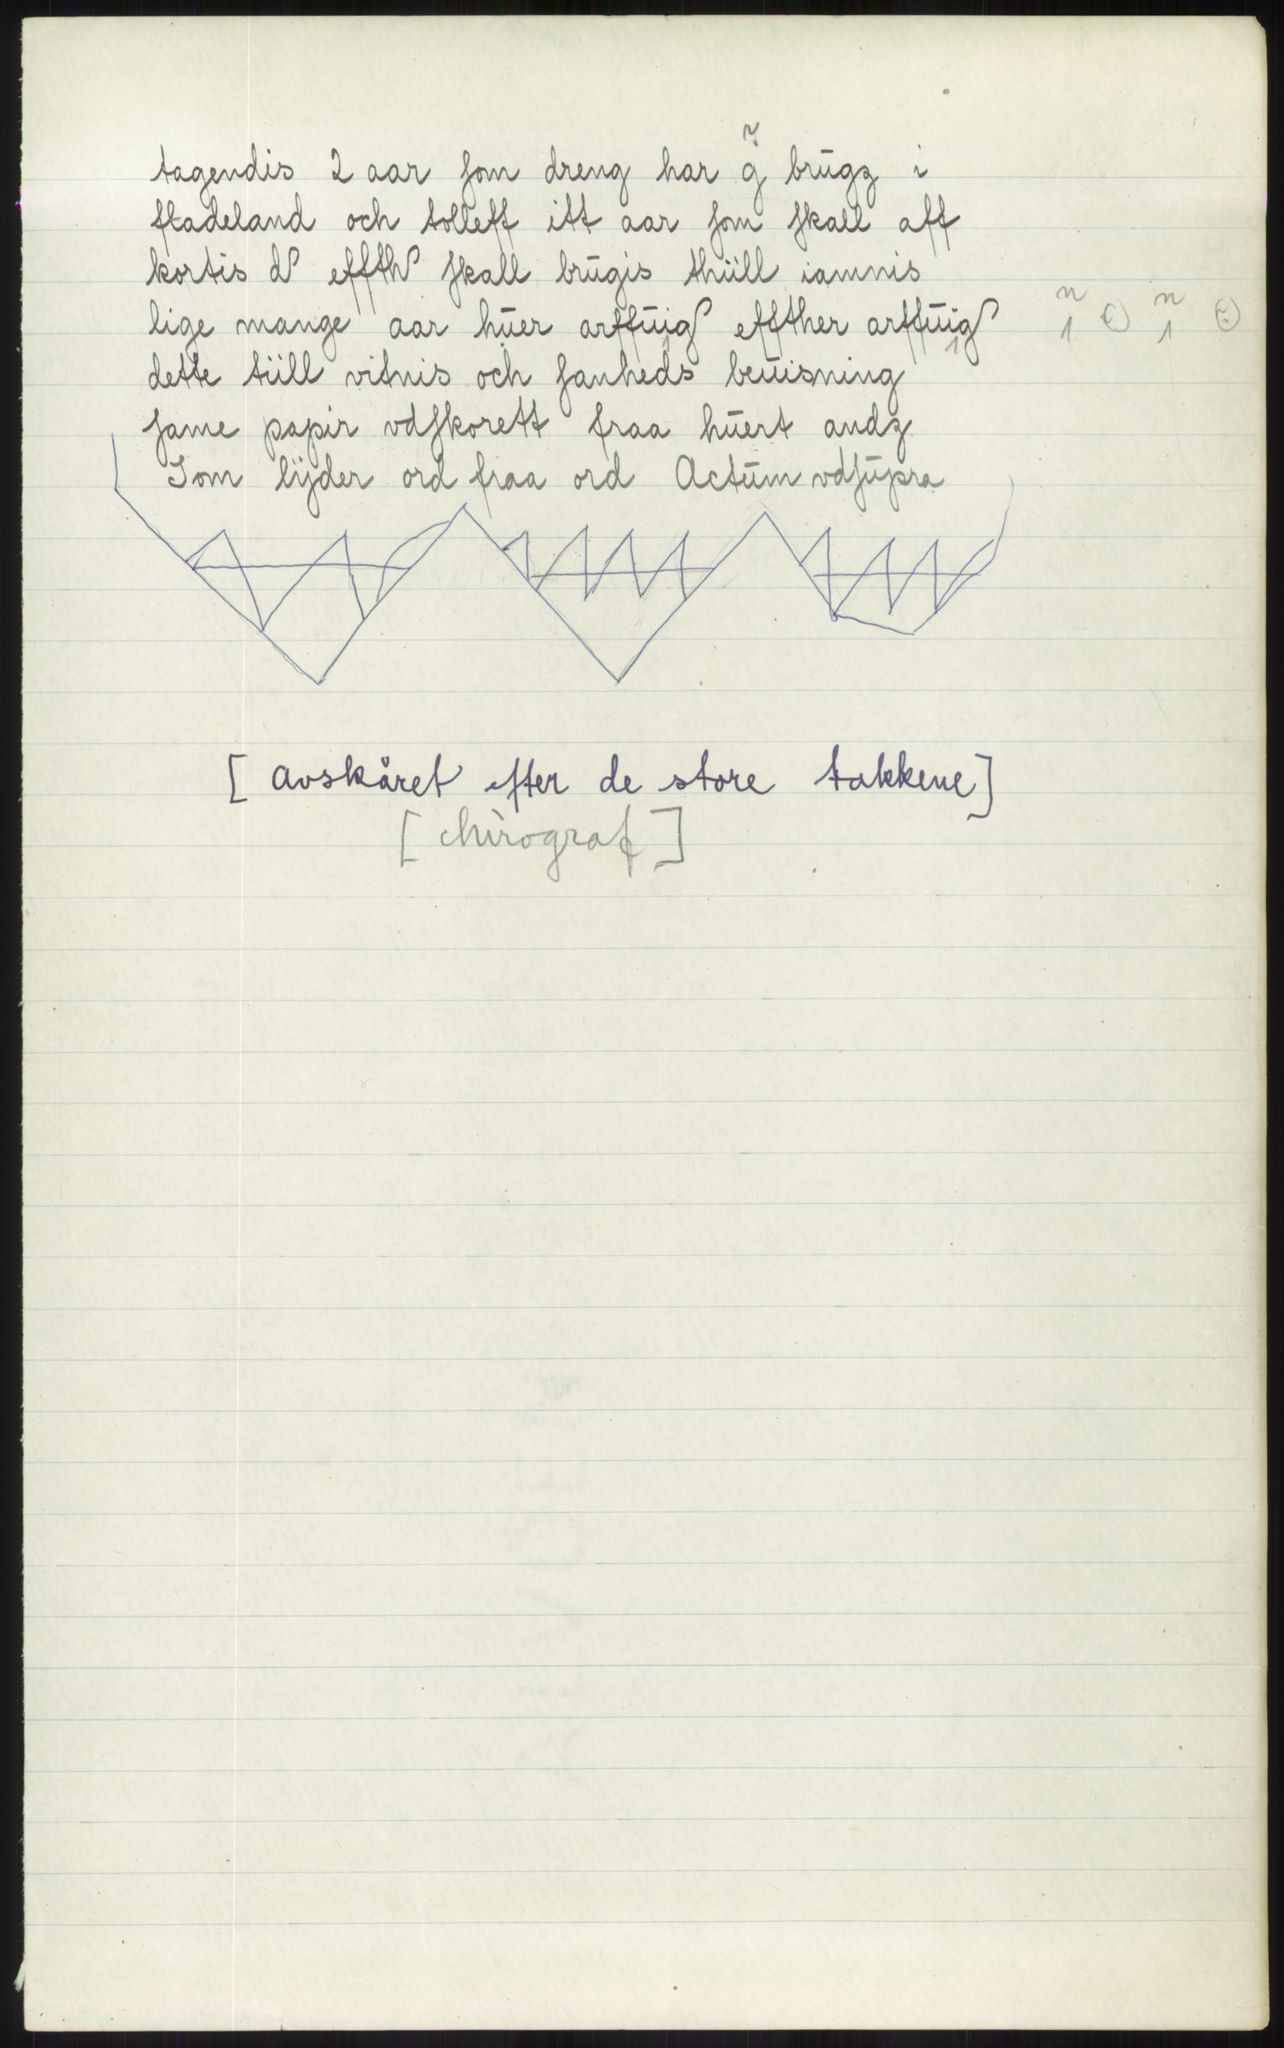 tagendis 2 aar som dreng har g brūgz i
stadeland och tolleff itt aar som skall aff
kortis d effth skall brūgis thiill iamnis
lige mange aar hūer arffūig effther arffūig
dette tiill vitnis och sanheds beuisning
same papir vdskorett fraa hūert andz
Som lijder ord fraa ord Actūm vdsūpra
[avskåret efter de store takkene]
[chirograf]